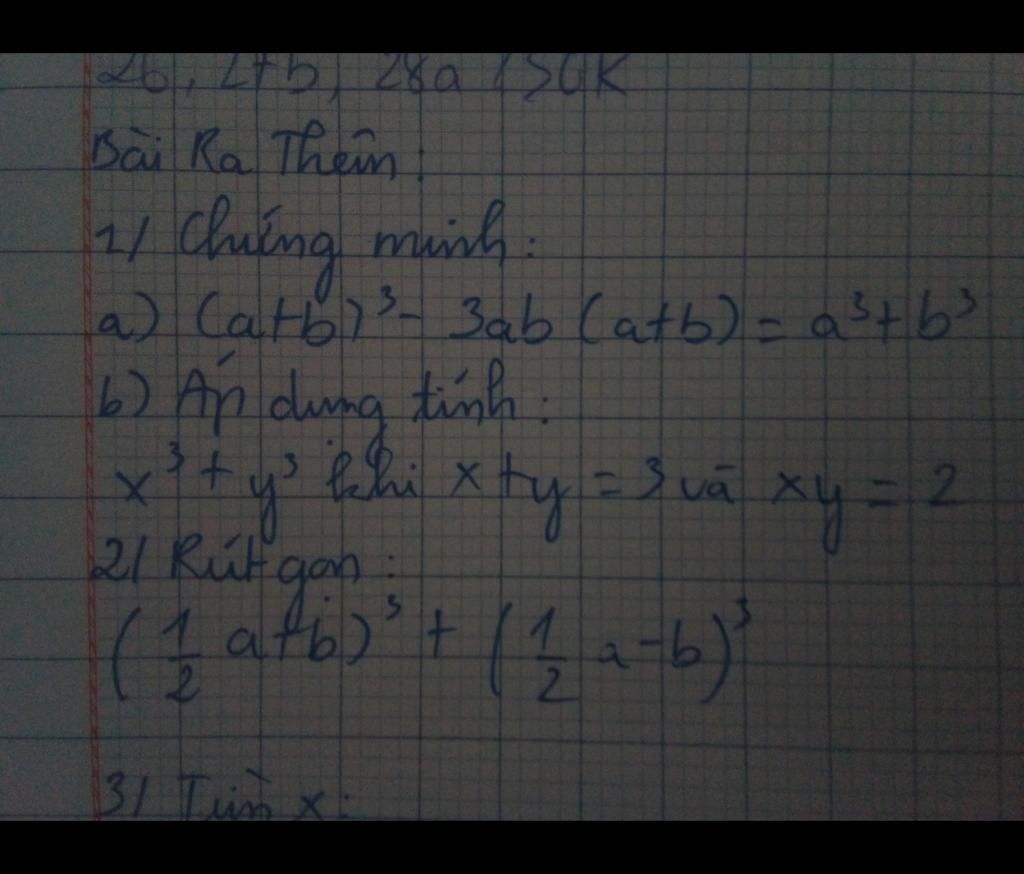 26, 27b, 28a /SGK
Bài Ra Thêm:
1/ Chứng minh:
a) (a+b)³ - 3ab (a+b) = a³ + b³
b) Áp dụng tính:
x³ + y³ khi x + y = 3 và xy = 2
2/ Rút gọn:
(1/2 a+b)³ + (1/2 a-b)³
3/ Tìm x: